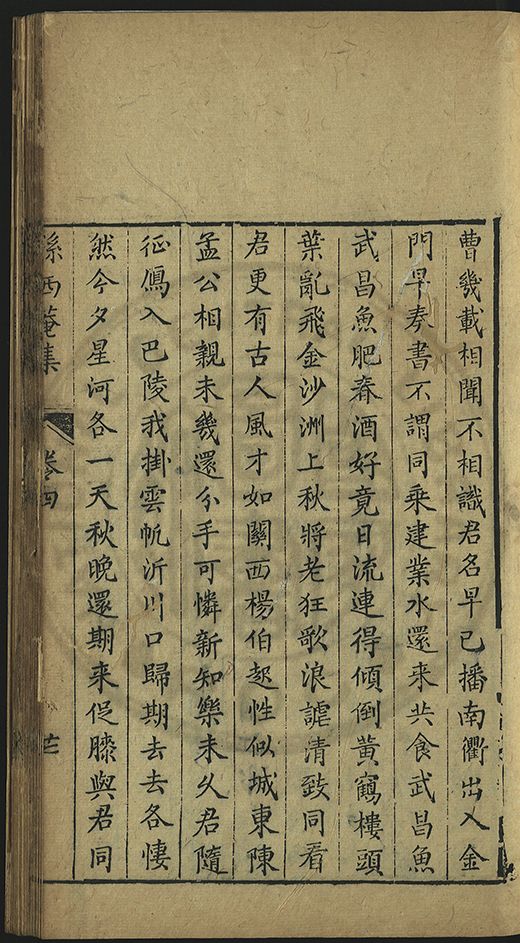 曹幾載相聞不相識君名早已播南衢出入金
門早奏書不謂同乘建業水還来共食武昌魚
武昌魚肥春酒好竟日流連得傾倒黄鶴樓頭
葉亂飛金沙洲上秋將老狂歌浪謔清致同看
君更有古人風才如關西楊伯起性似城東陳
孟公相親未幾還分手可憐新知樂未乆君隨
征鴈入巴陵我掛雲帆泝川口歸期去去各悽
然今夕星河各一天秋晚還期来促膝與君同
孫西菴集
卷四